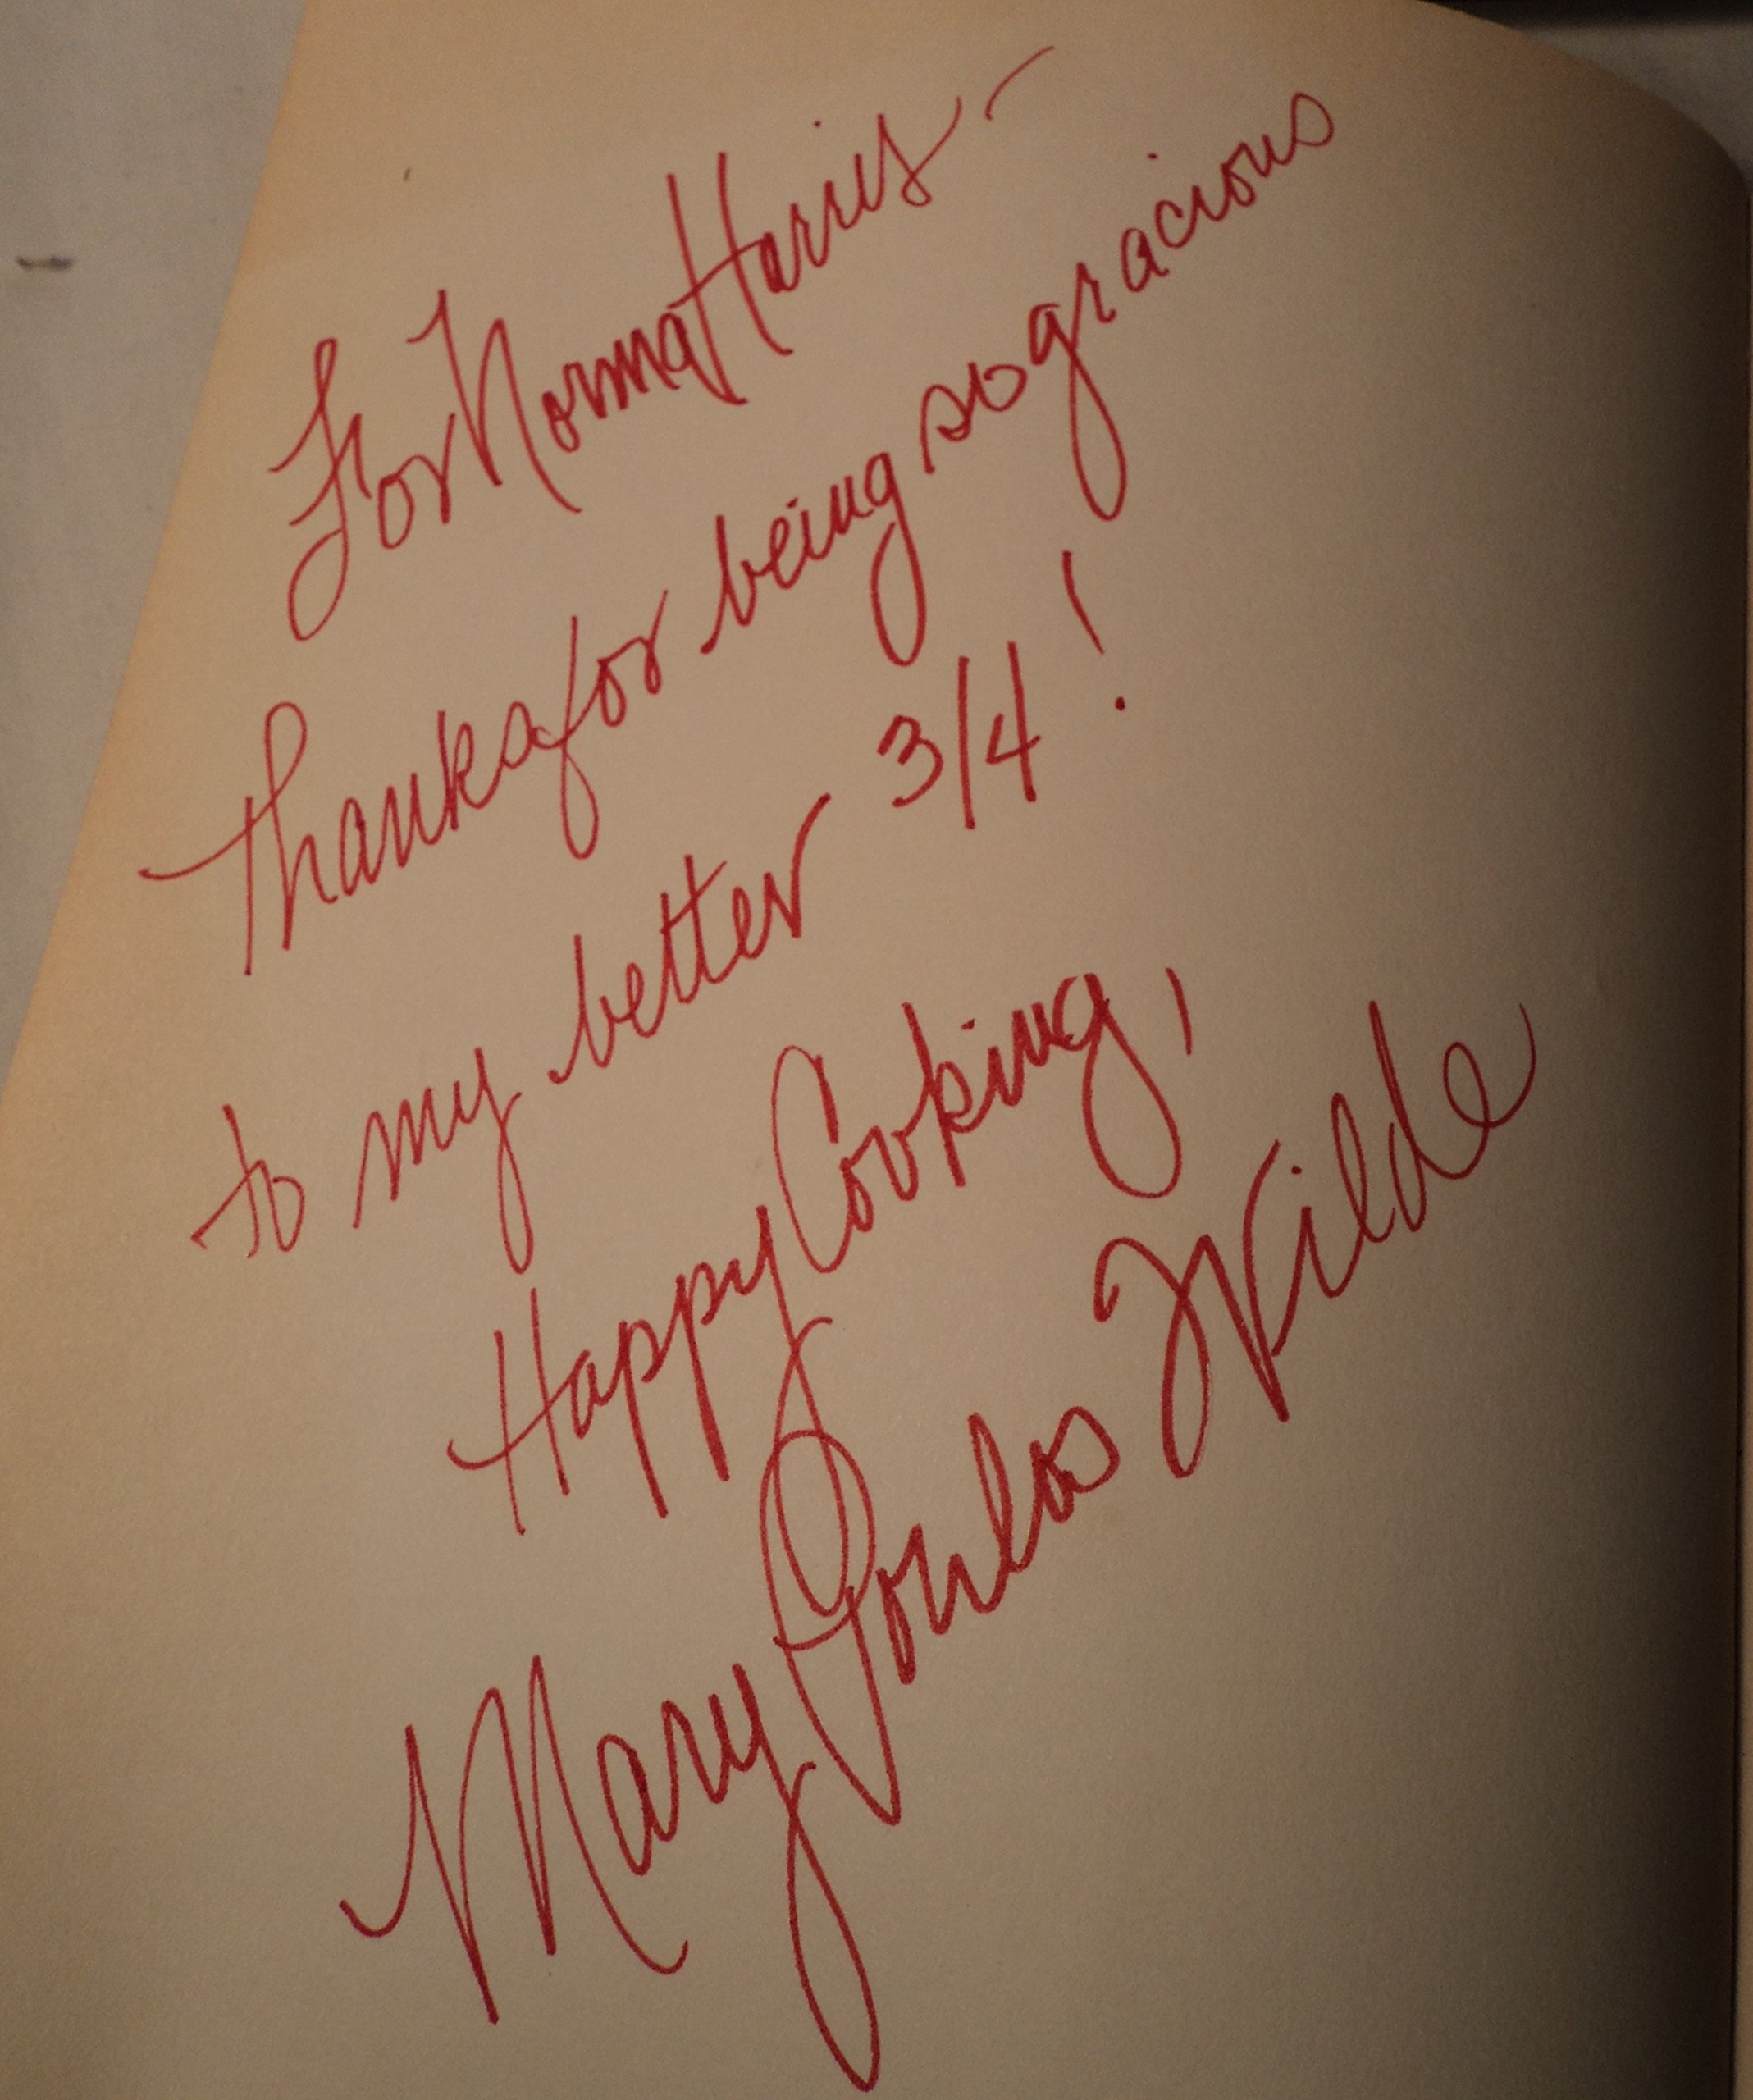 For Norma Harris -
Thanks for being so gracious
to my better 3/4!
Happy Cooking,
Mary Poulos Wilde